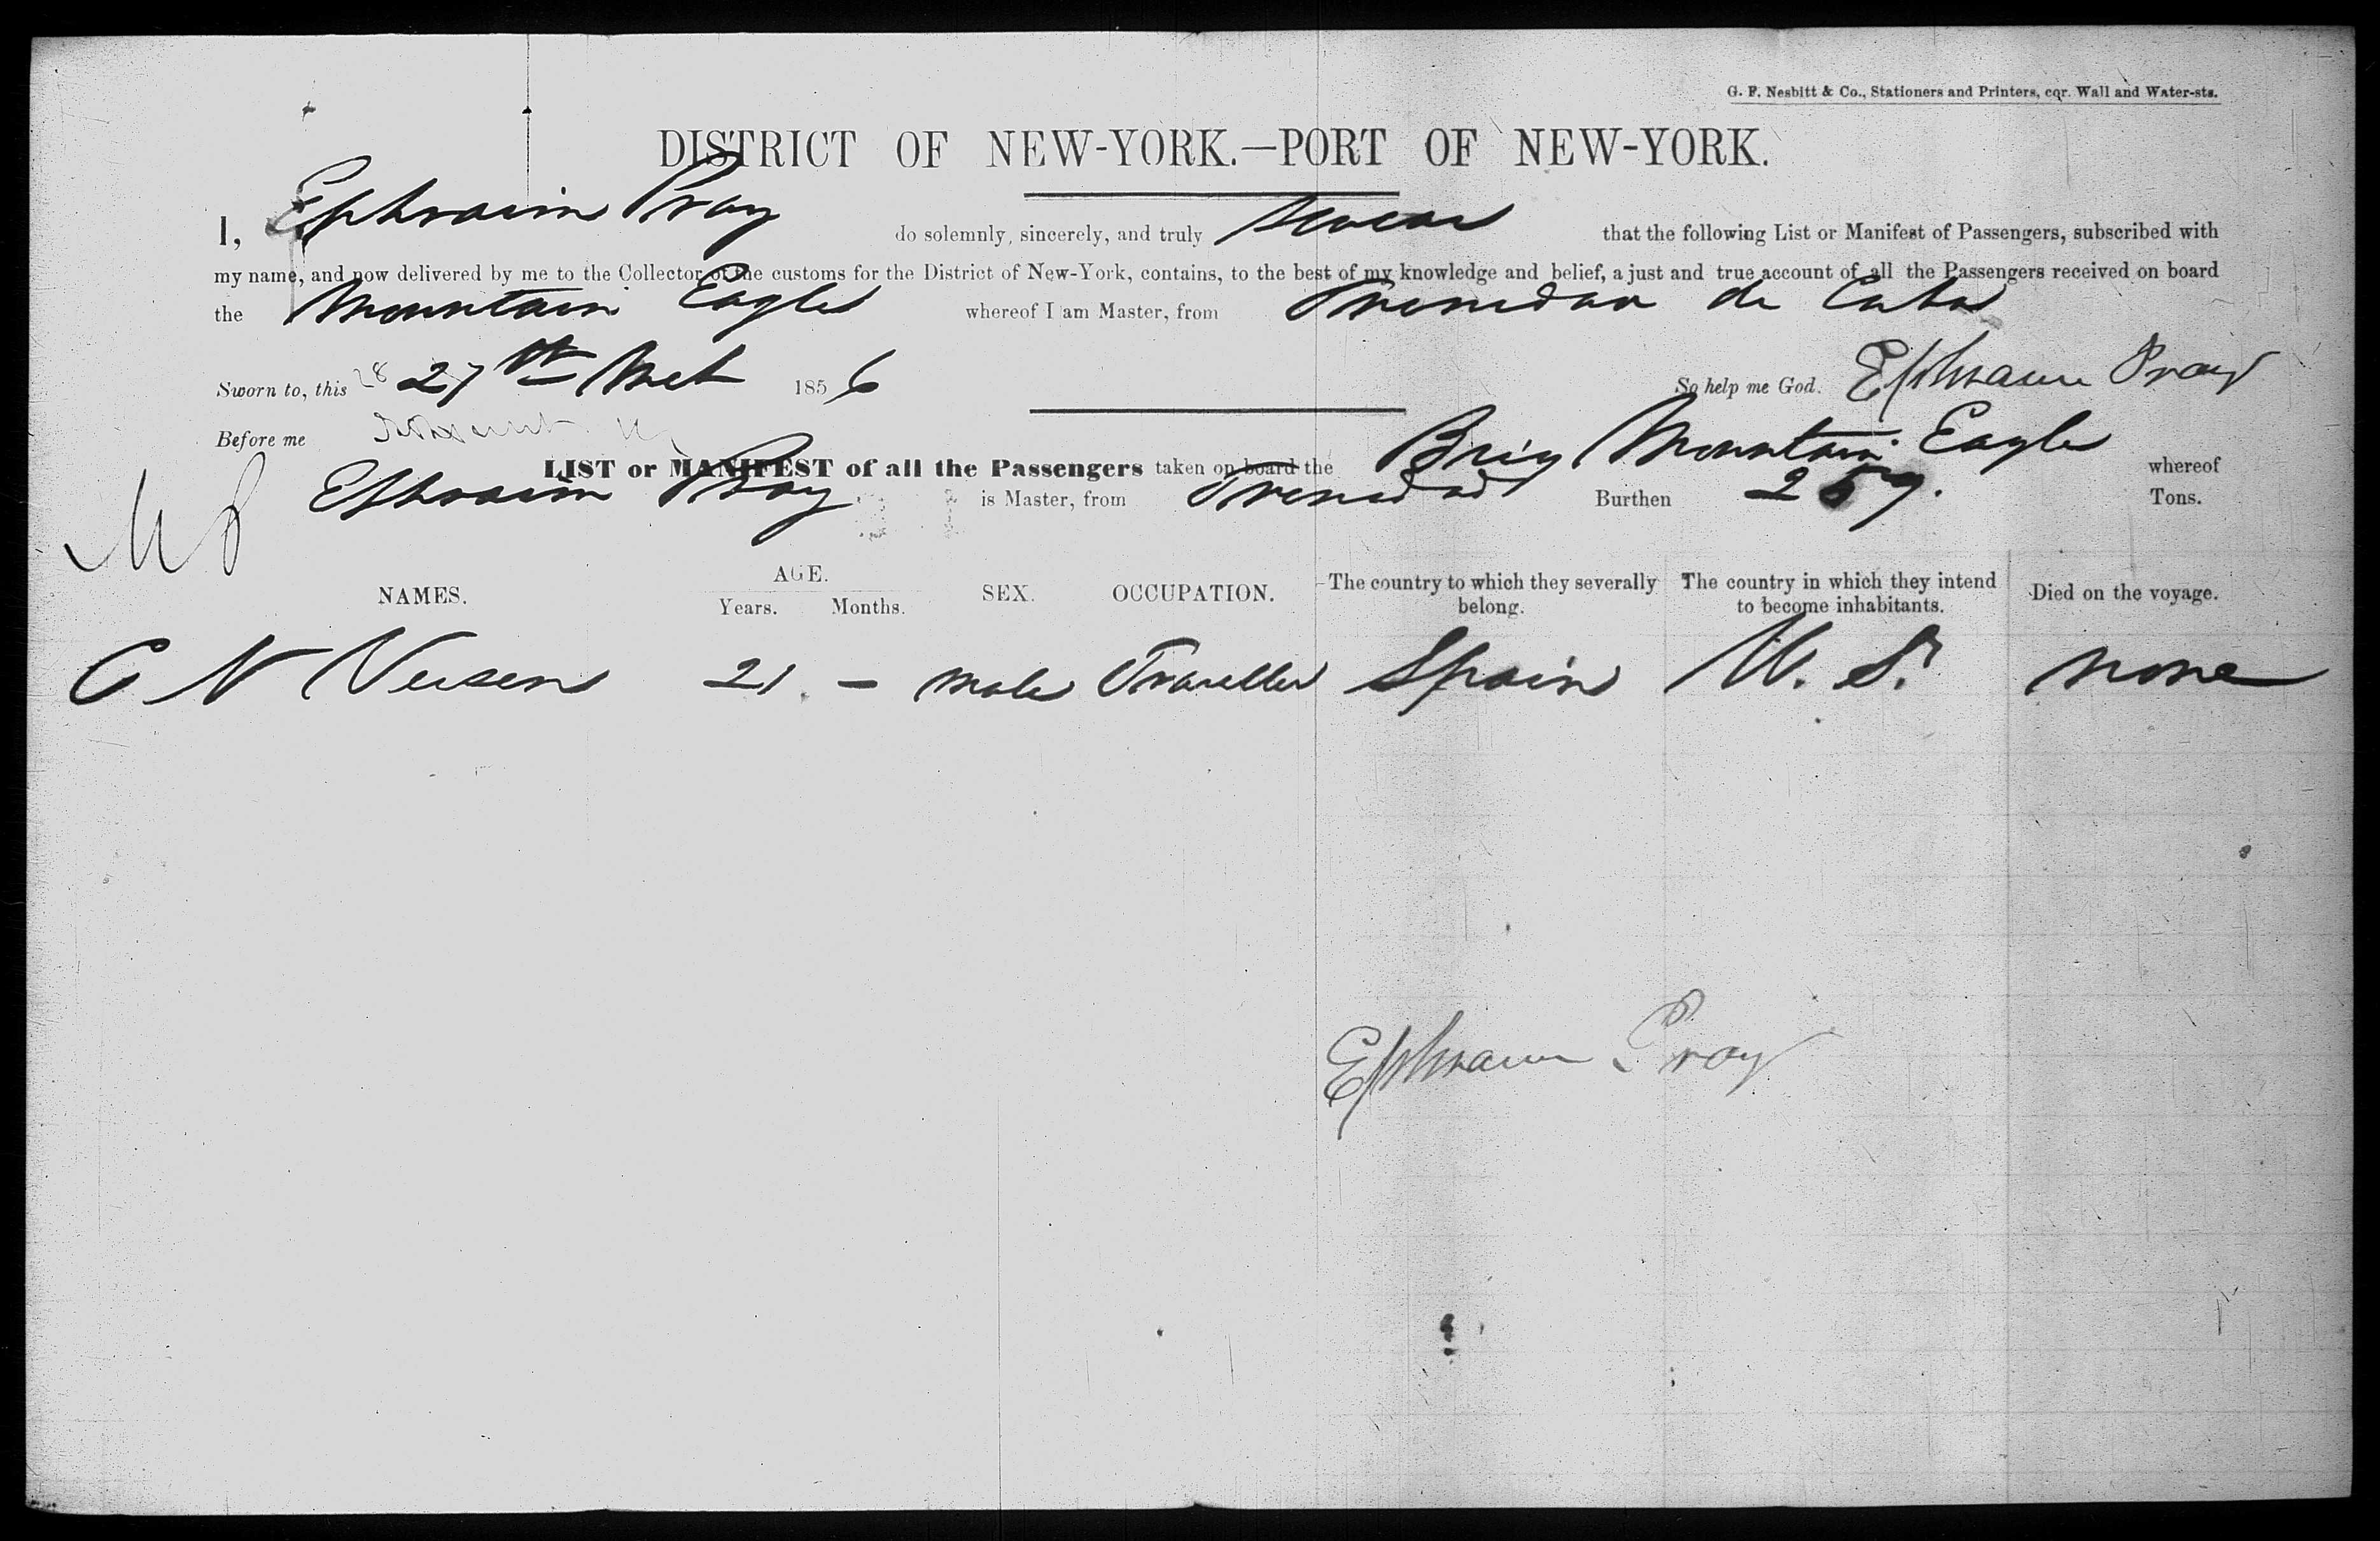 G. F. Nesbitt & Co., Stationers and Printers, cor. Wall and Water-sts.
DISTRICT OF NEW-YORK.—PORT OF NEW-YORK.
I, Ephraim Pray do solemnly, sincerely, and truly swear that the following List or Manifest of Passengers, subscribed with
my name, and now delivered by me to the Collector of the customs for the District of New-York, contains, to the best of my knowledge and belief, a just and true account of all the Passengers received on board
the Mountain Eagle whereof I am Master, from Trinidad de Cuba
Sworn to, this 28 27th 1856 So help me God. Ephraim Pray
Before me
LIST or MANIFEST of all the Passengers taken on board the Brig Mountain Eagle whereof
Ephraim Pray is Master, from Trinidad Burthen 259. Tons.
NAMES. AGE. Years. Months. SEX. OCCUPATION. The country to which they severally belong. The country in which they intend to become inhabitants. Died on the voyage.
C N 21 - male Traveller Spain U. S. none
Ephraim Pray